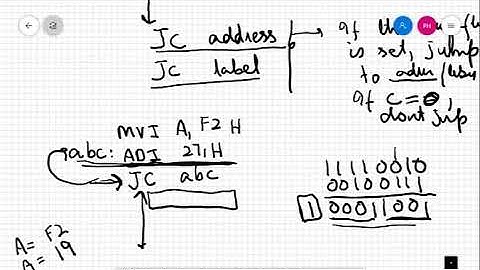 JC address
JC label
is set, jump
to
if C=0,
dont jump
MVI A, F2 H
abc: ADI 27H
JC abc
11110010
00100111
1 00011001
1
A= F2
A= 19
PH